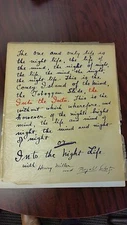 The one and only life is
the night life, the life of
the mind, the night,
the life, the mind, the night,
the life. This is the
Coney Island of the mind,
the Toboggan Slide, the
Into the Into. This is the
without which wherefore and
however of the night
night life and mind of
night, the mind and night
of night
or
Into the Night Life
with Henry Miller
and